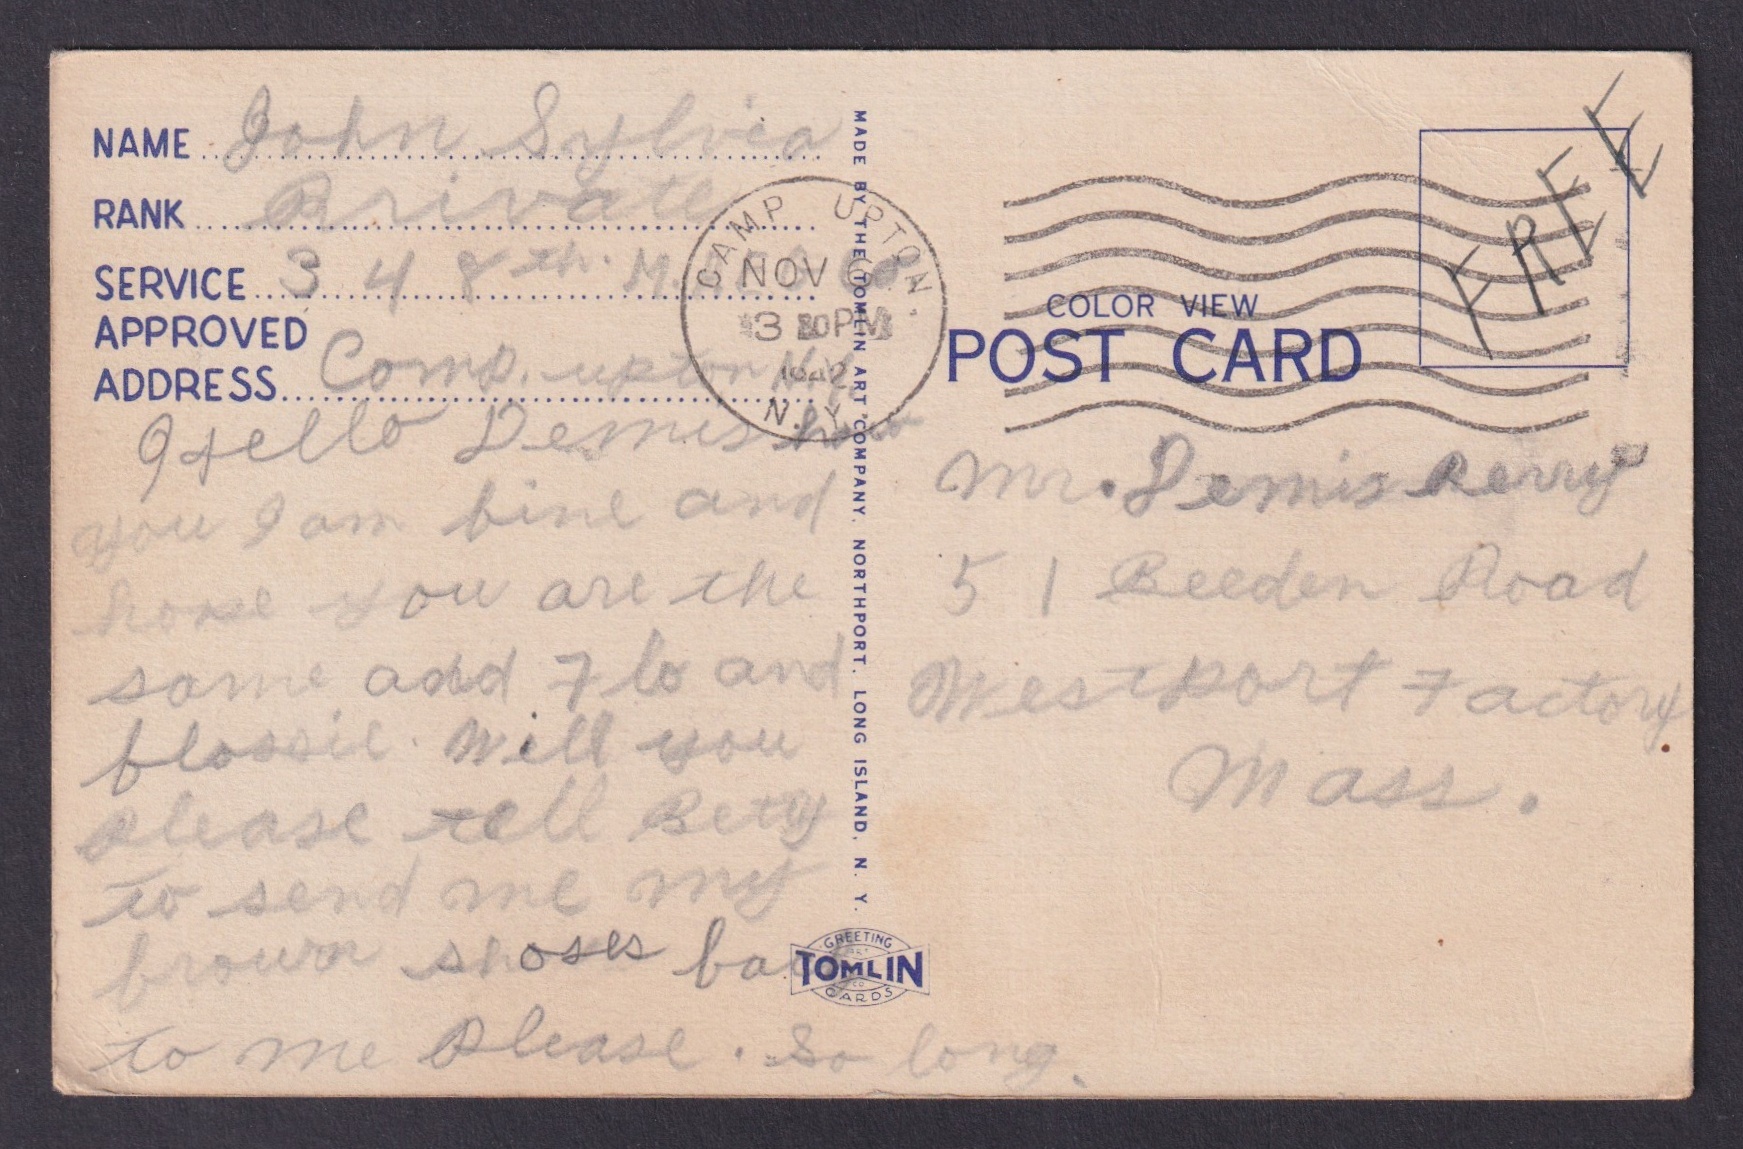 NAME John Sylvia
RANK Private
SERVICE 3 4 8th. M.P.E.G Co
APPROVED
ADDRESS Comp. upton N.Y.
Hello Demis how
you I am fine and
hope you are the
same add Flo and
flossie. Will you
please tell Bety
to send me my
brown shoses back
to me please. So long.
MADE BY THE TOMLIN ART COMPANY. NORTHPORT. LONG ISLAND. N. Y.
GREETING
TOMLIN
CARDS
CAMP UPTON.
NOV 6
3 30 PM
1942
N. Y.
COLOR VIEW
POST CARD
FREE
Mr. Demis Perry
5 1 Beeden Road
Westport Factory
Mass.